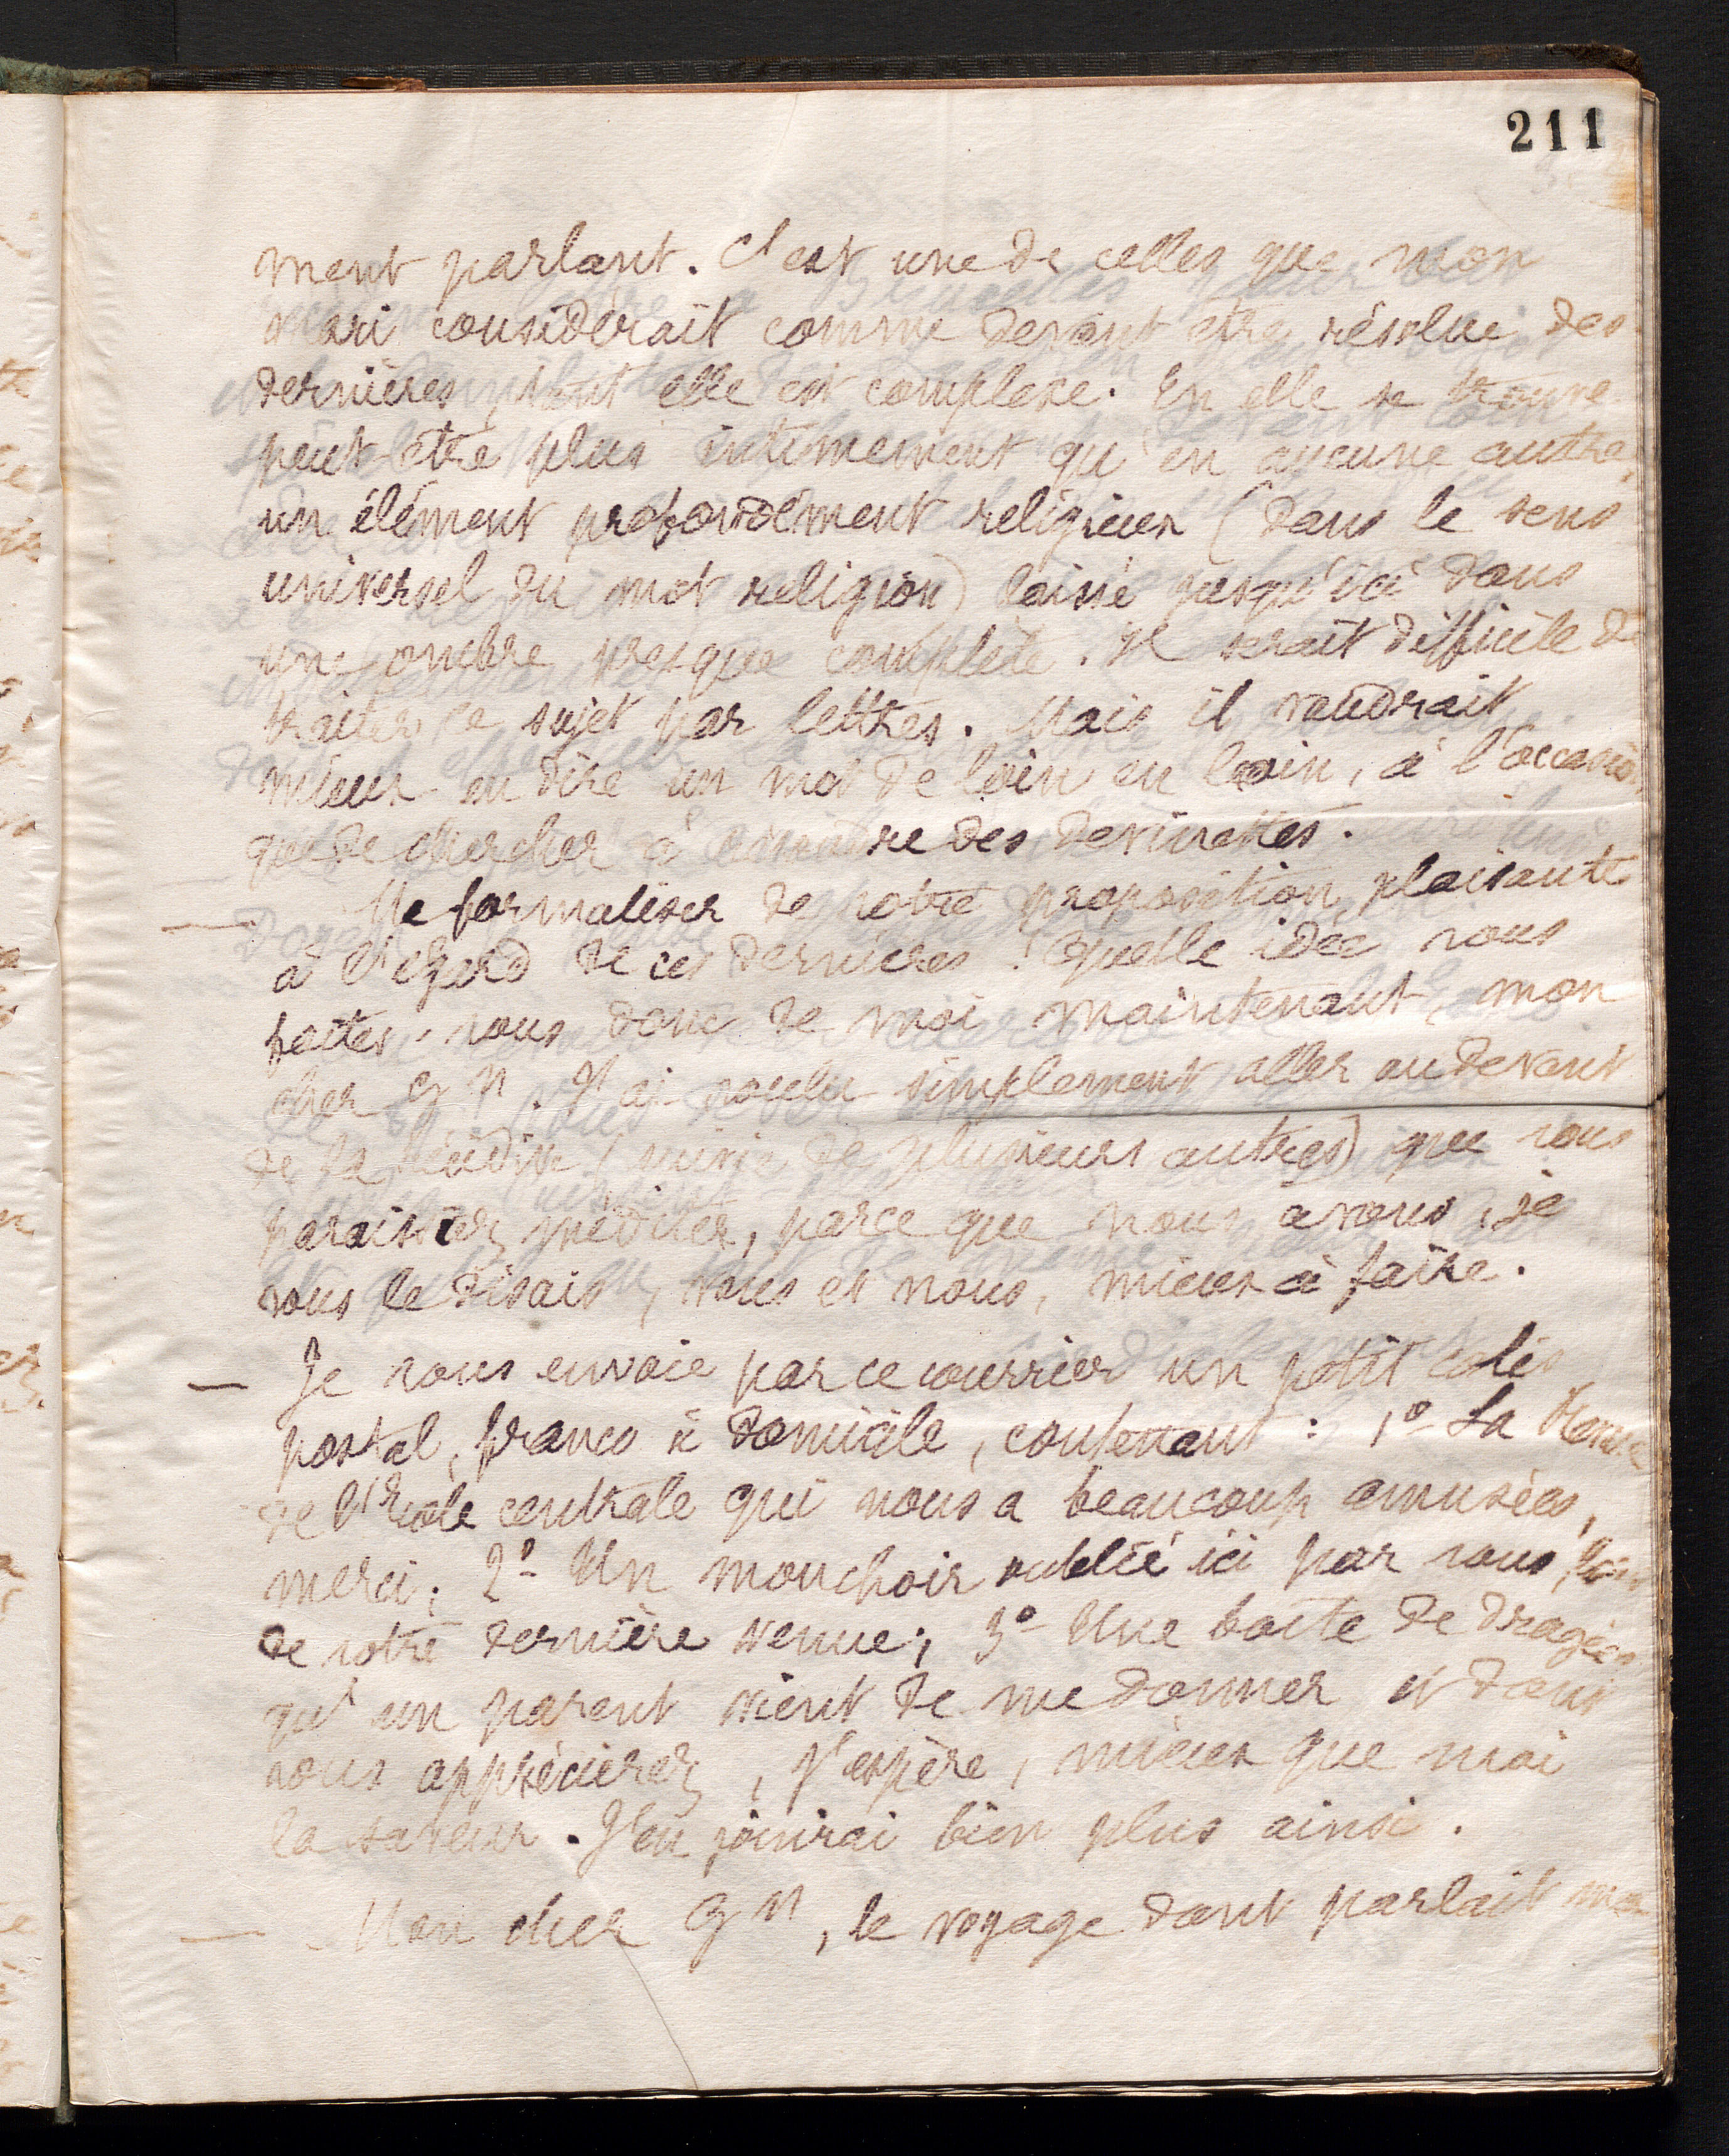 211
ment parlant. C'est une de celles que mon
mari considérait comme devant être résolue des
dernières, tant elle est complexe. En elle se trouve
peut-être plus intimement qu'en aucune autre,
un élément profondément religieux (dans le sens
universel du mot religion) laissé jusqu'ici dans
une ombre presque complète. Il serait difficile de
traiter ce sujet par lettres. Mais il vaudrait
mieux en dire un mot de loin en loin, à l'occasion,
que de chercher à résoudre des devinettes.
— Me formaliser de votre proposition plaisante
à l'égard de ces dernières ! Quelle idée vous
faites-vous donc de moi maintenant, mon
cher Gn. J'ai voulu simplement aller au devant
de la (suivie de plusieurs autres) que vous
paraissiez méditer, parce que nous avons, je
vous le disais, vous et nous, mieux à faire.
— Je vous envoie par ce courrier un petit colis
postal, franco à domicile, contenant : 1º La Revue
de l'Ecole centrale qui nous a beaucoup amusées,
merci; 2º Un mouchoir oublié ici par vous, lors
de votre dernière venue; 3º Une boîte de dragées
qu'un parent vient de me donner et dont
vous apprécierez, j'espère, mieux que moi
la saveur. J'en jouirai bien plus ainsi.
— Mon cher Gn, le voyage dont parlait ma